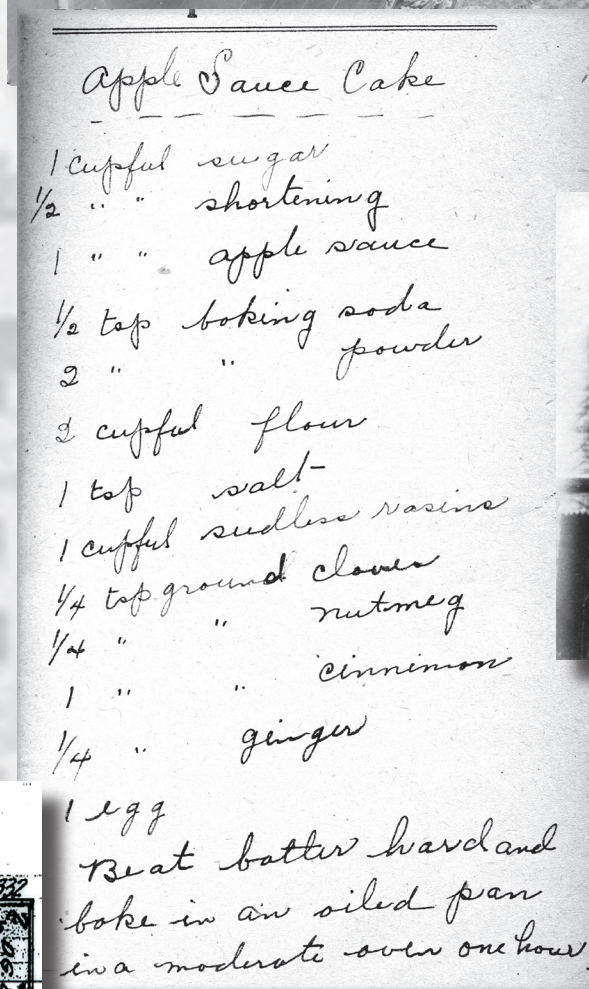 Apple Sauce Cake
1 cupful sugar
1/2 " " shortening
1 " " apple sauce
1/2 tsp baking soda
2 " " powder
2 cupful flour
1 tsp salt
1 cupful seedless rasins
1/4 tsp ground cloves
1/4 " " nutmeg
1 " " cinnimon
1/4 " ginger
1 egg
Beat batter hard and
bake in an oiled pan
in a moderate oven one hour.
332